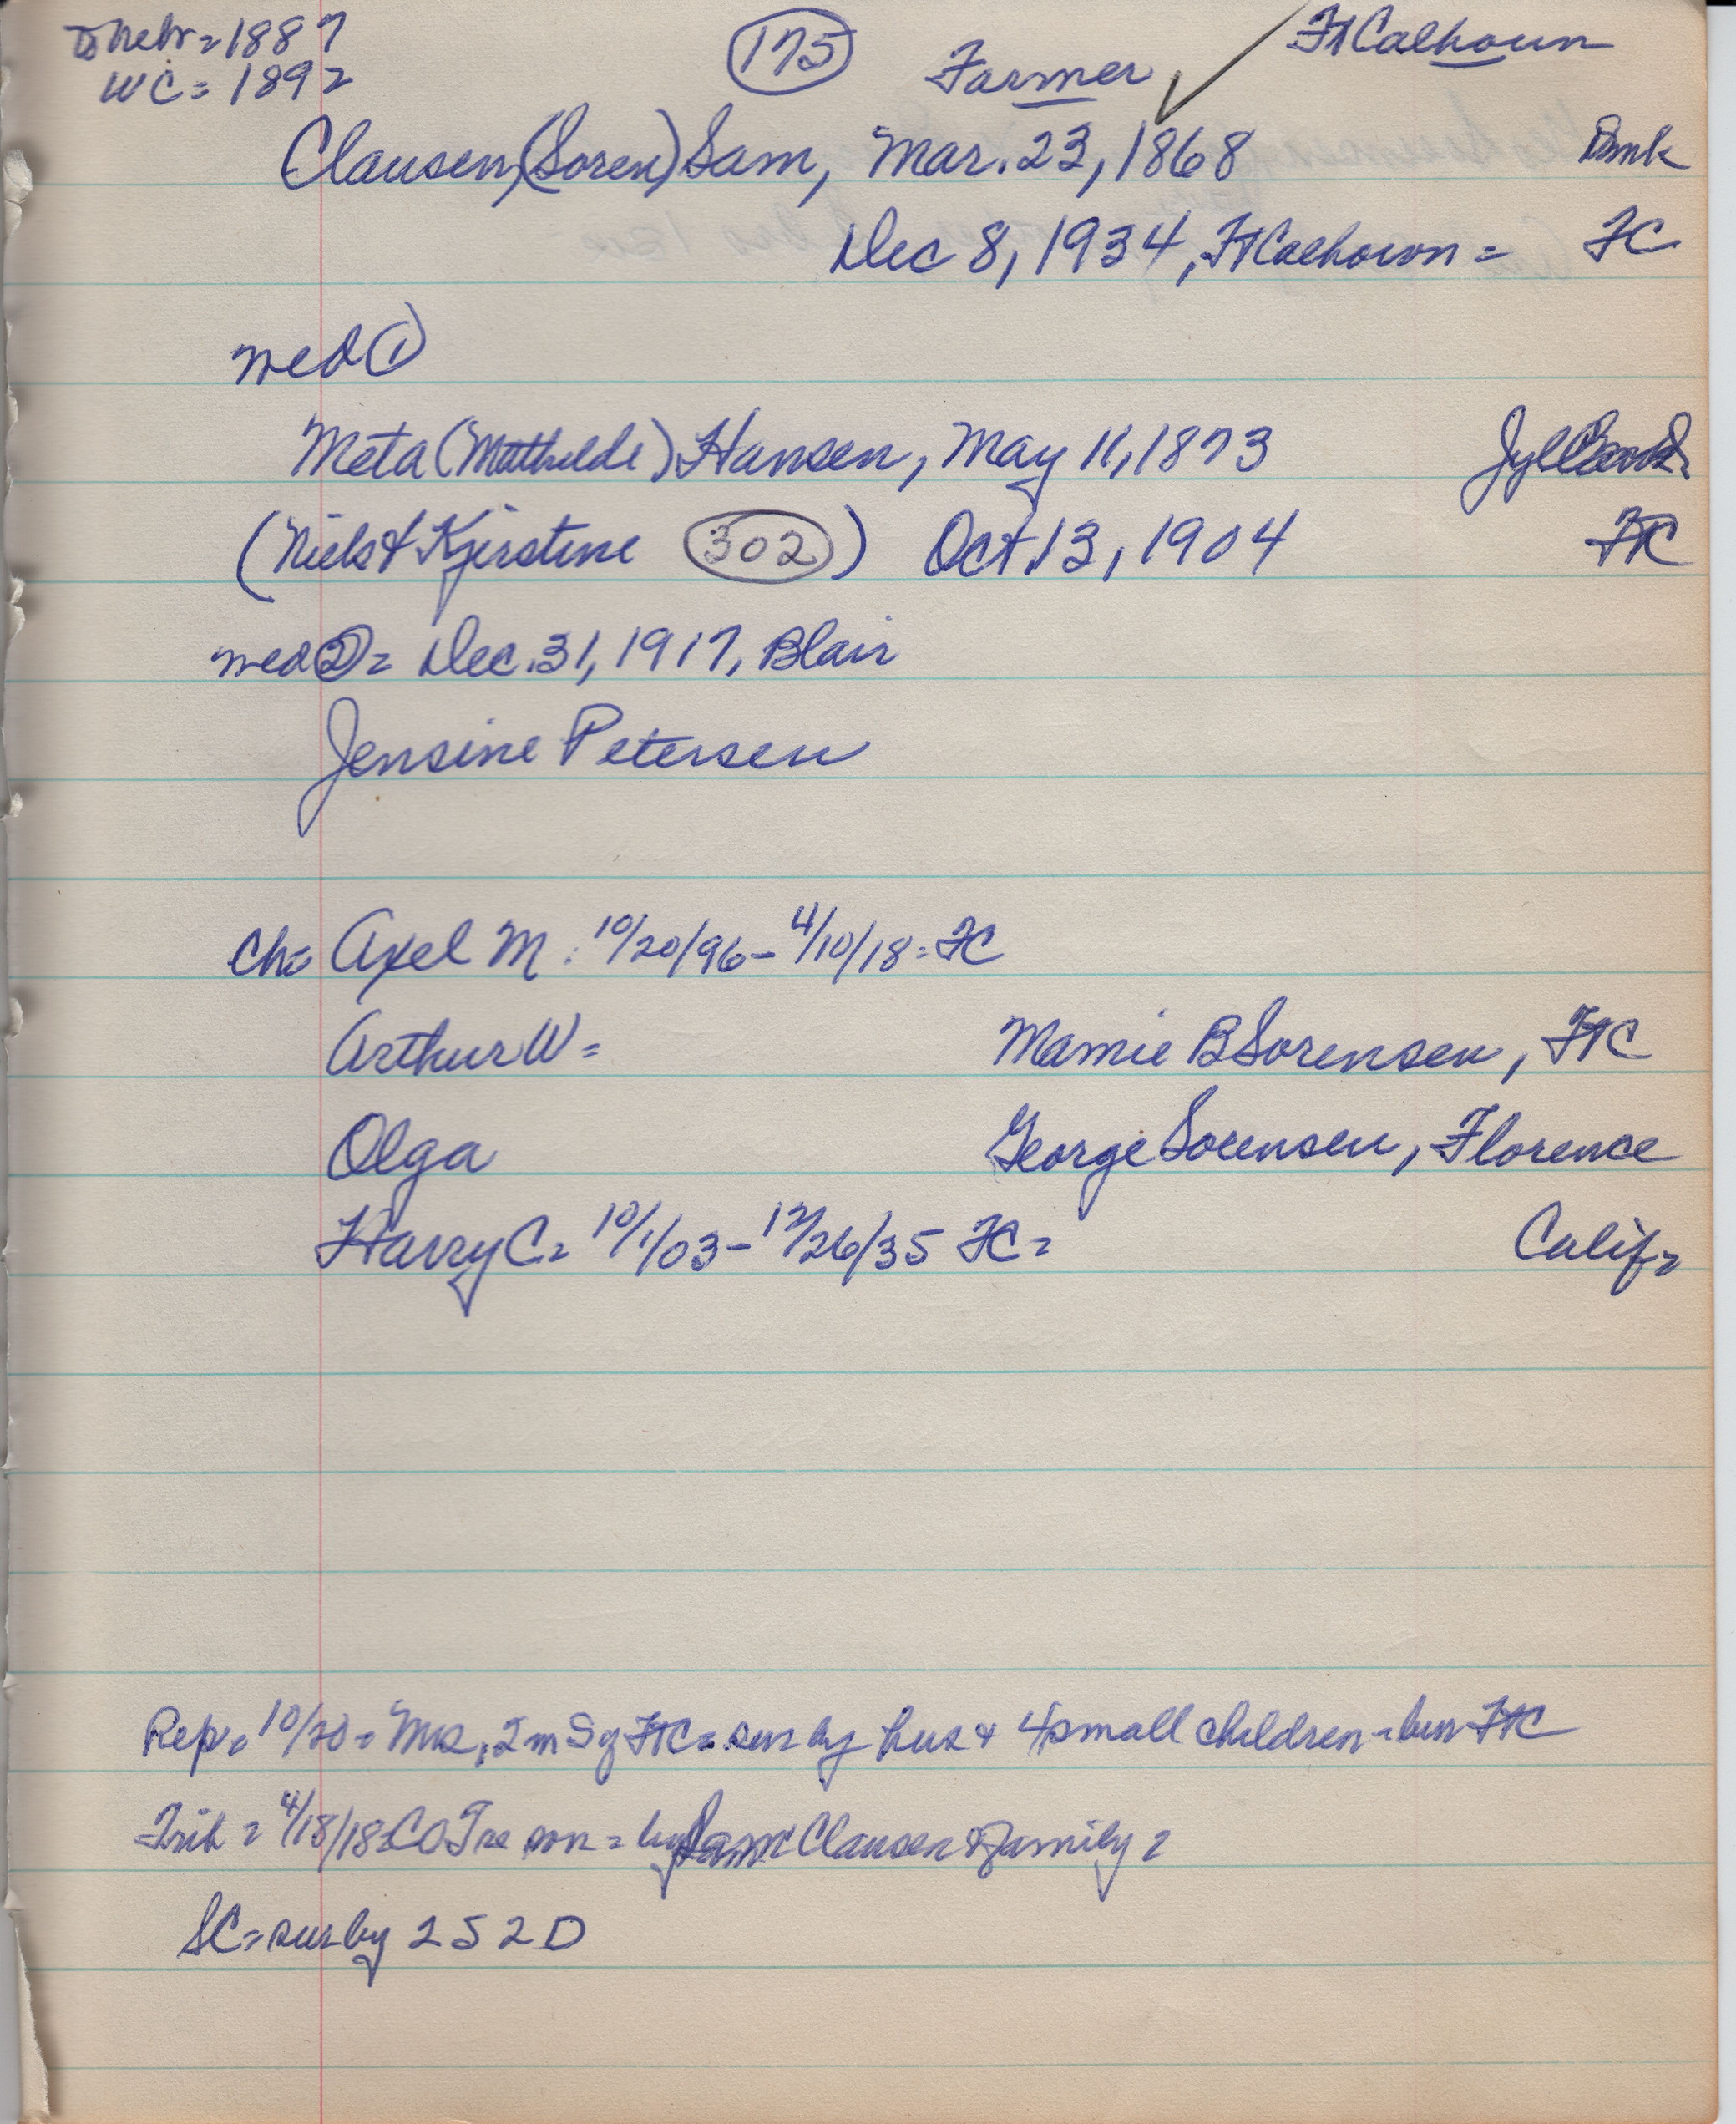 Nebr = 1887
WC = 1892
175 Farmer Ft Calhoun
Clausen, (Soren) Sam, Mar. 23, 1868 Dmk
Dec 8, 1934, Ft Calhoun = FC
med ①
Meta (Mathilde) Hansen, May 11, 1873
(Niels & Kjerstine 302) Oct. 13, 1904 FtC
med ② = Dec. 31, 1917, Blair
Jensine Petersen
Ch = Axel M. 10/20/96 - 4/10/18 = FC
Arthur W = Mamie B Sorensen, FtC
Olga George Sorensen, Florence
Harry C = 10/1/03 - 12/26/35 FC = Calif =
Rep = 10/20 = Mrs, FtC = sur by hus & 4 small children = bur FtC
Trib = 4/18/18 = son = by Sam Clausen & family =
SC = sur by 2 S 2 D